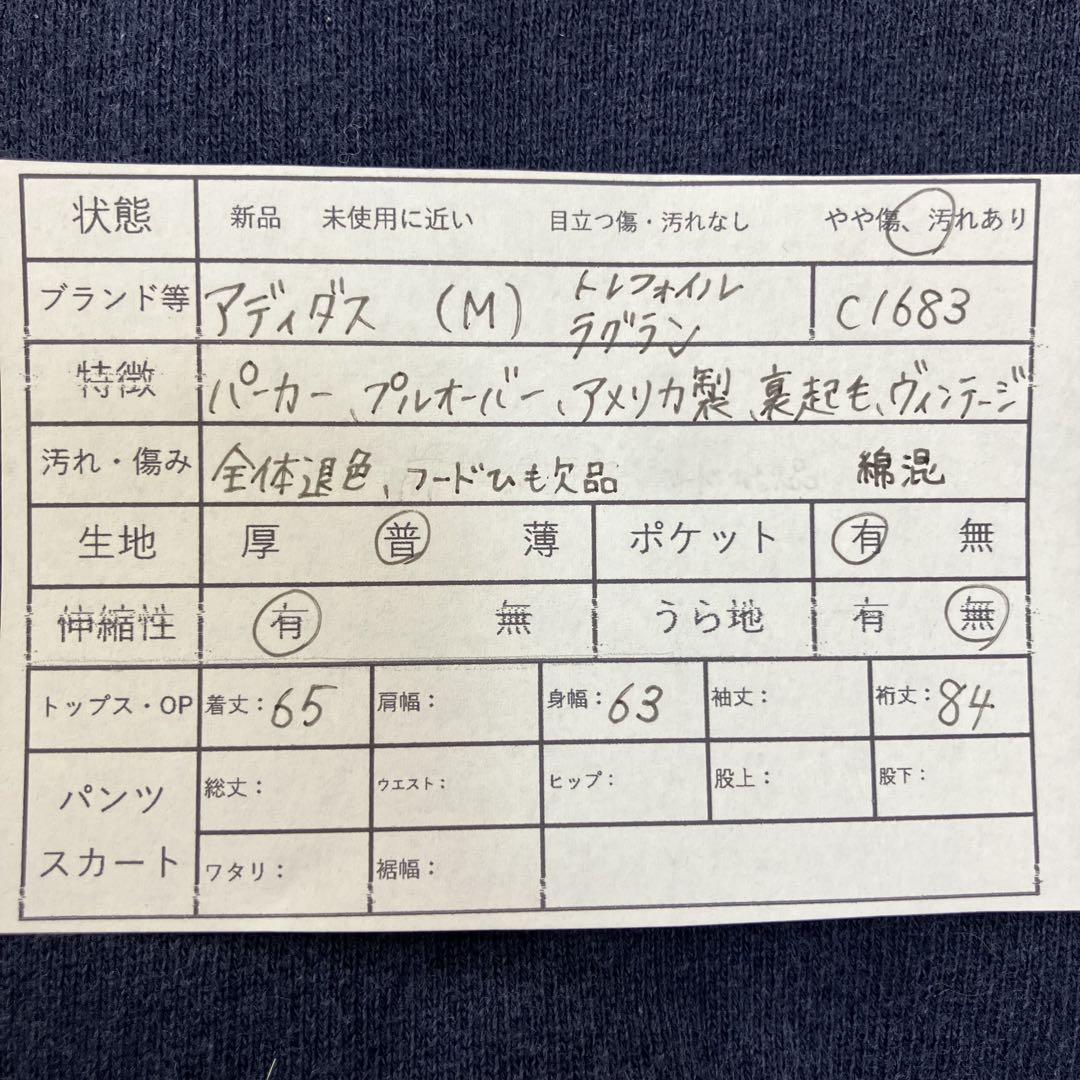 状態 新品 未使用に近い 目立つ傷・汚れなし やや傷、汚れあり
ブランド等 アディダス (M) トレフォイル ラグラン C1683
特徴 パーカー、プルオーバー、アメリカ製、裏起も、ヴィンテージ
汚れ・傷み 全体退色、フードひも欠品 綿混
生地 厚 普 薄 ポケット 有 無
伸縮性 有 無 うら地 有 無
トップス・OP 着丈：65 肩幅： 身幅：63 袖丈： 裄丈：84
パンツ 総丈： ウエスト： ヒップ： 股上： 股下：
スカート ワタリ： 裾幅：